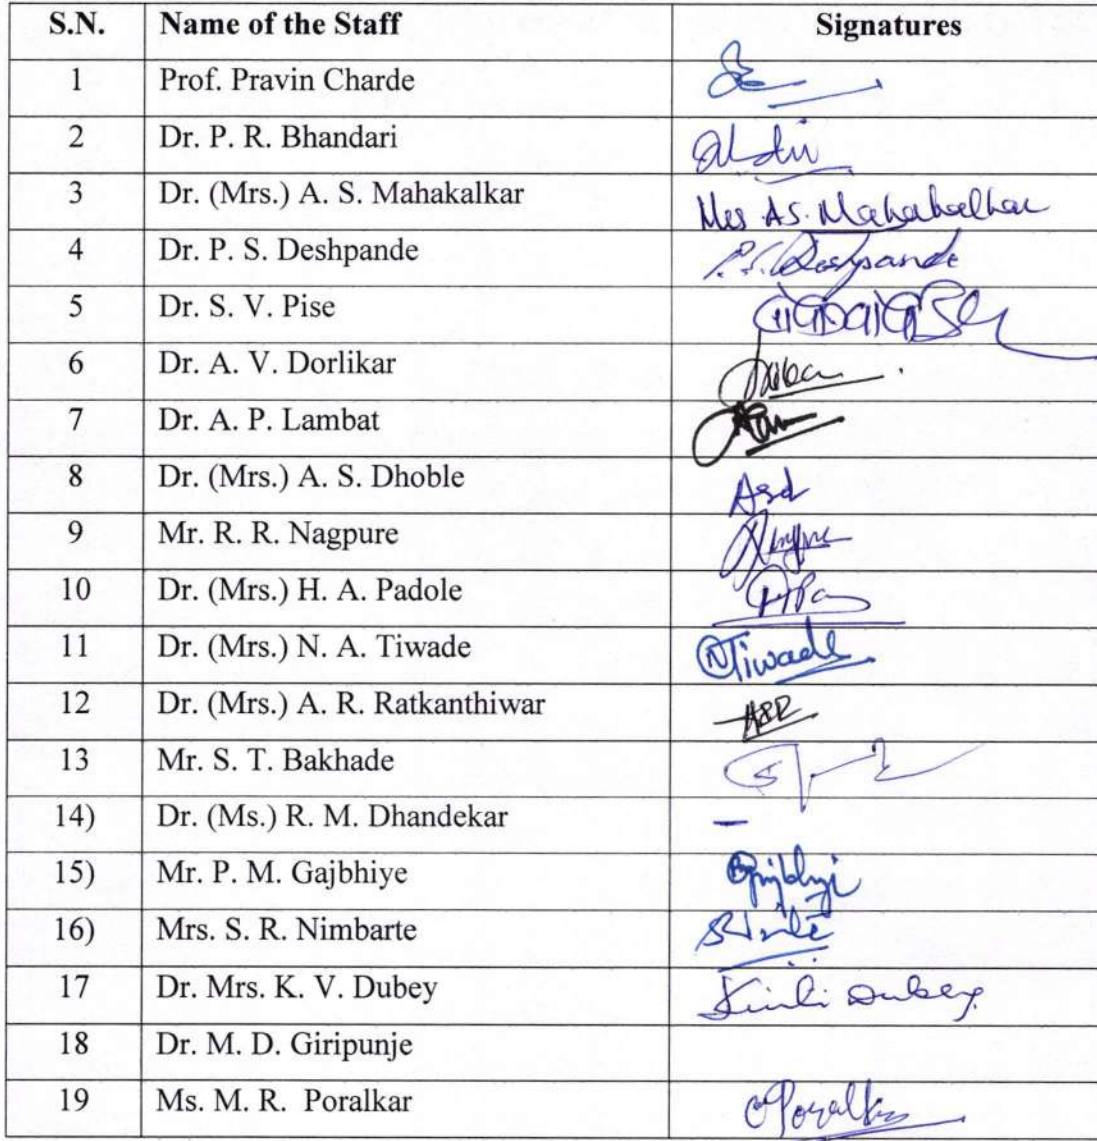 S.N. Name of the Staff Signatures
1 Prof. Pravin Charde
2 Dr. P. R. Bhandari
3 Dr. (Mrs.) A. S. Mahakalkar Mrs A.S. Mahakalkar
4 Dr. P. S. Deshpande P.S. Deshpande
5 Dr. S. V. Pise
6 Dr. A. V. Dorlikar
7 Dr. A. P. Lambat
8 Dr. (Mrs.) A. S. Dhoble Asd
9 Mr. R. R. Nagpure
10 Dr. (Mrs.) H. A. Padole
11 Dr. (Mrs.) N. A. Tiwade NTiwade
12 Dr. (Mrs.) A. R. Ratkanthiwar
13 Mr. S. T. Bakhade
14) Dr. (Ms.) R. M. Dhandekar –
15) Mr. P. M. Gajbhiye
16) Mrs. S. R. Nimbarte
17 Dr. Mrs. K. V. Dubey Dubey
18 Dr. M. D. Giripunje
19 Ms. M. R. Poralkar